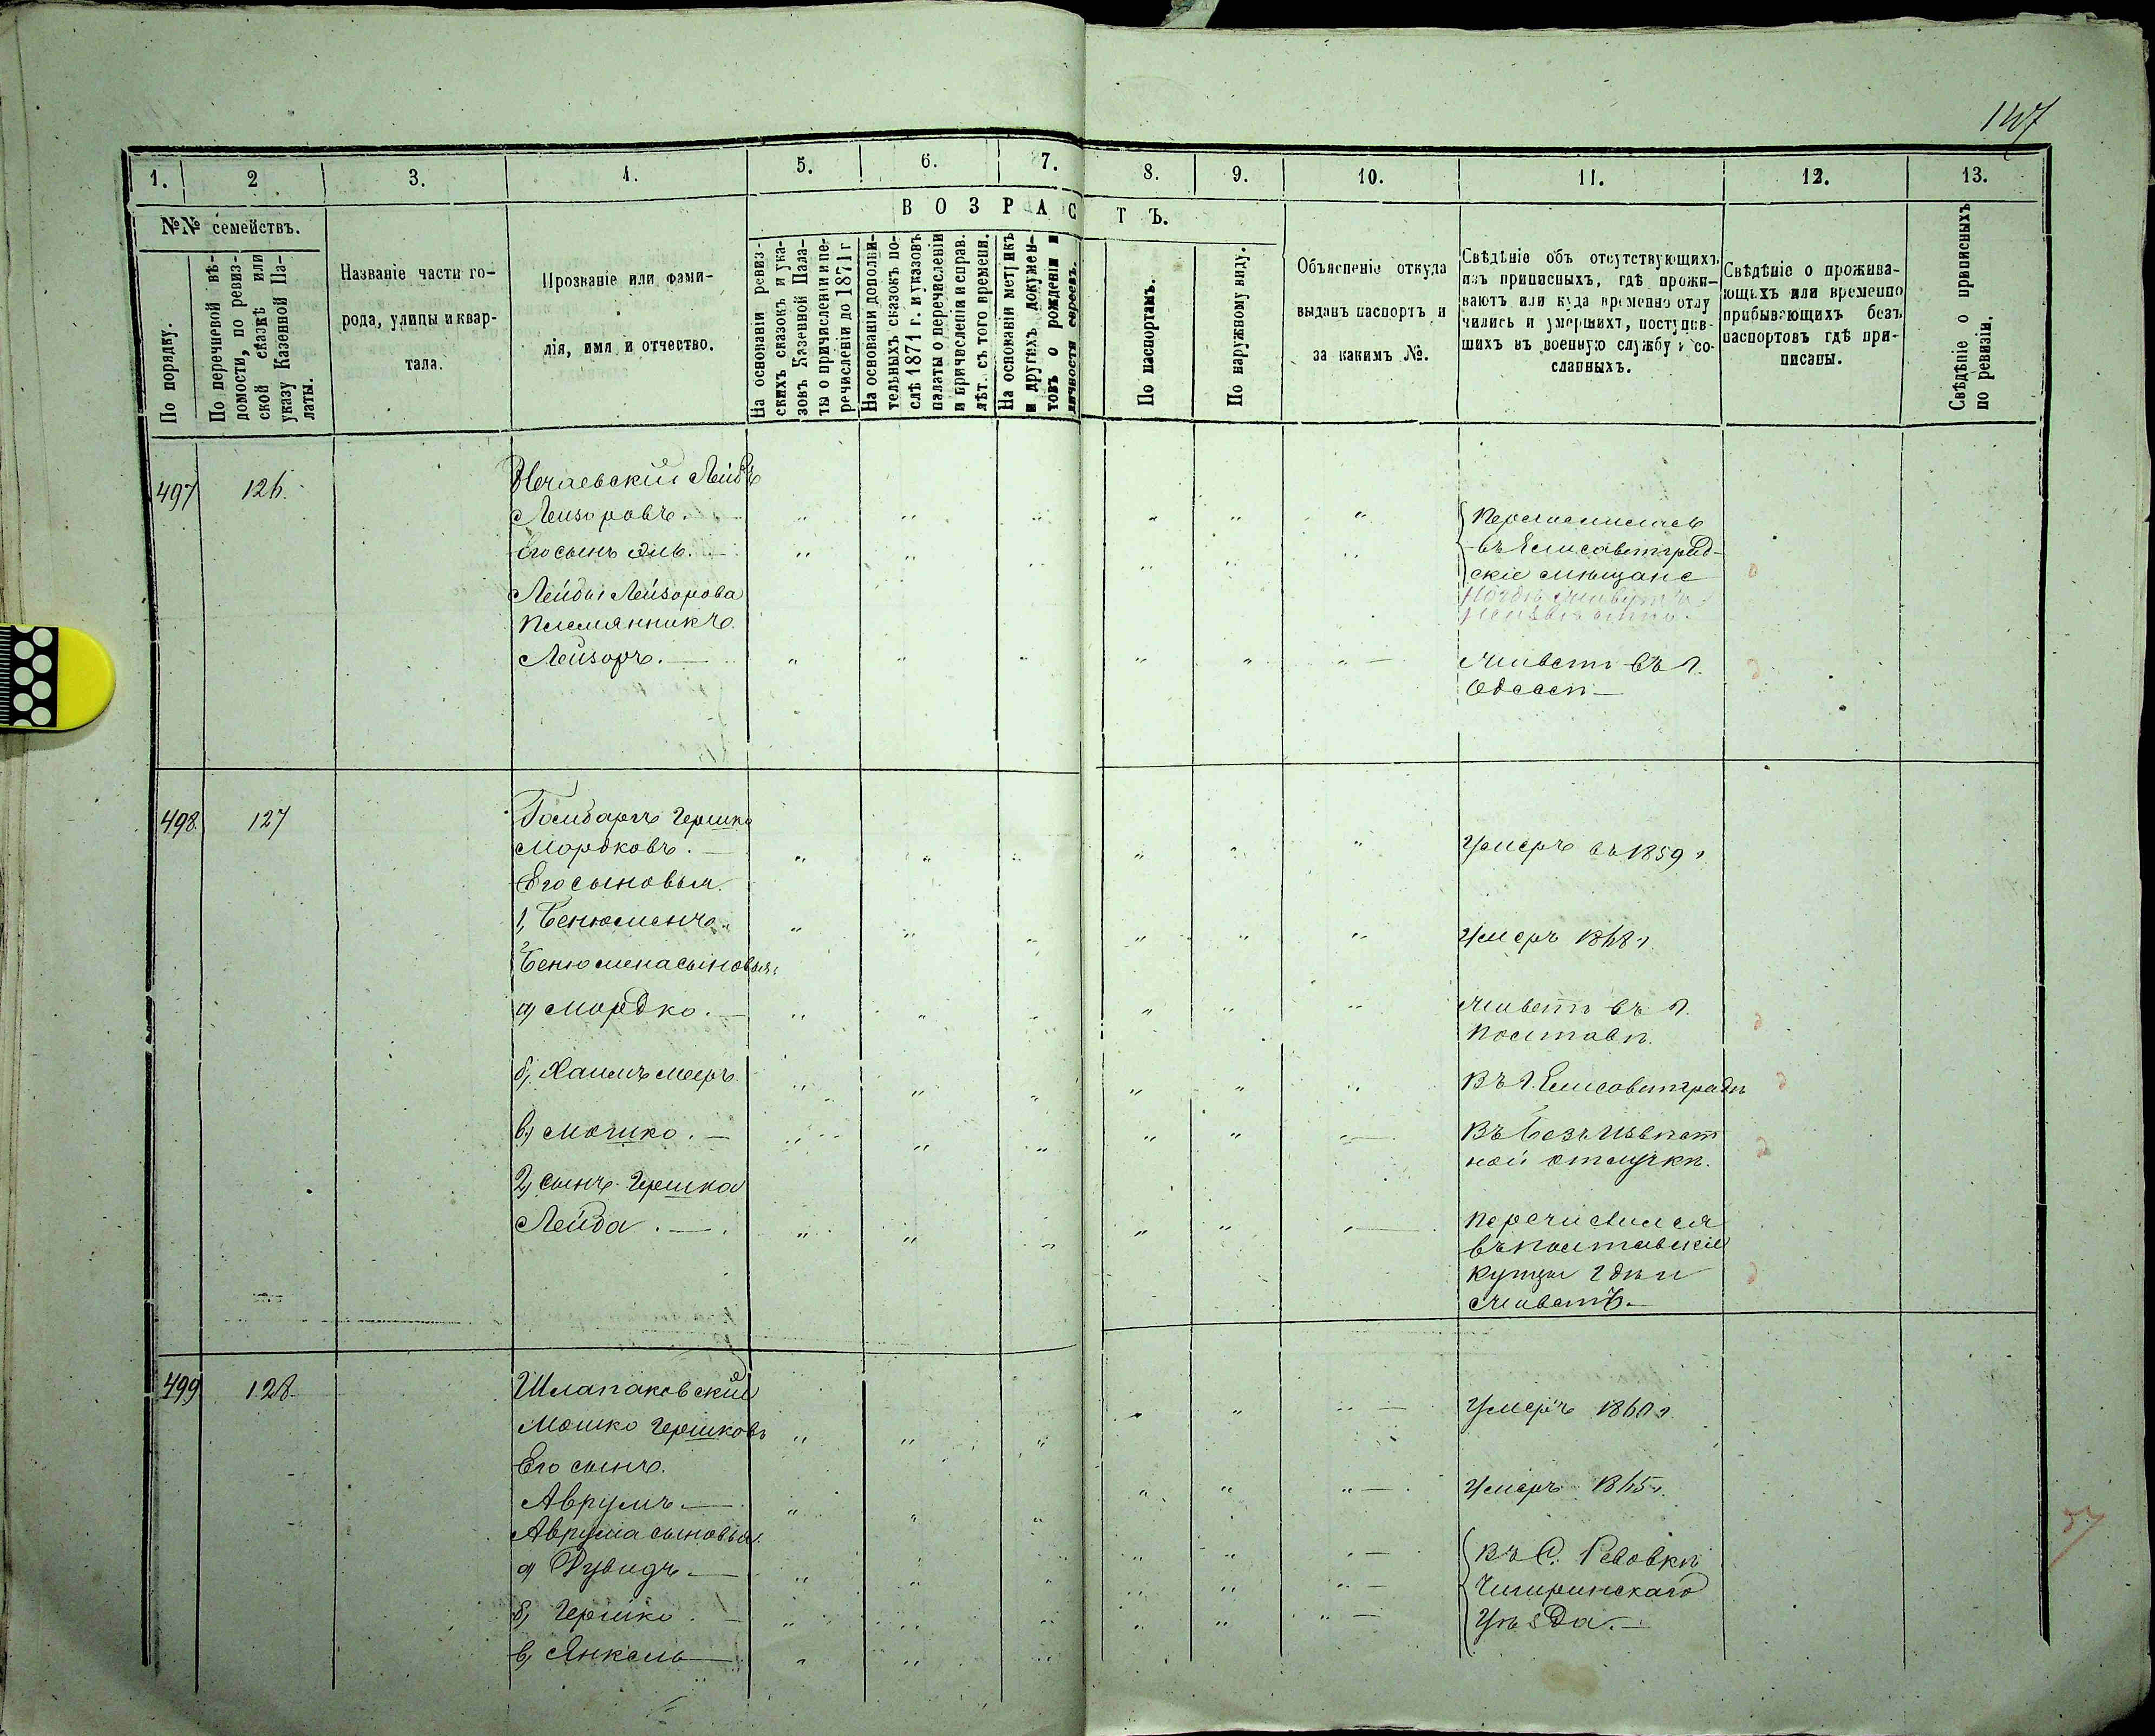 147
1. 2 3. 4. 5. 6. 7. 8. 9. 10. 11. 12. 13.
№№ семействъ.
ВОЗРАСТЪ.
По порядку.
По перечневой вѣ-
домости, по ревиз-
ской сказкѣ или
указу Казенной Па-
латы.
Названіе части го-
рода, улицы и квар-
тала.
Прозваніе или фами-
лія, имя и отчество.
На основаніи ревиз-
скихъ сказокъ и ука-
зовъ Казенной Пала-
ты о причисленіи и пе-
речисленіи до 1871 г
На основаніи дополни-
тельныхъ сказокъ по-
слѣ 1871 г. и указовъ
палаты о перечисленіи
и причисленіи и справ.
лѣт. съ того времени.
На основаніи метрикъ
и другихъ докумен-
товъ о рожденіи и
личности евреевъ.
По паспортамъ.
По наружному виду.
Объясненіе откуда
выданъ паспортъ и
за какимъ №.
Свѣдѣніе объ отсутствующихъ
изъ приписныхъ, гдѣ прожи-
ваютъ или куда временно отлу
чились и умершихъ, поступив-
шихъ въ военную службу и со-
сланныхъ.
Свѣдѣніе о прожива-
ющихъ или временно
прибывающихъ безъ
паспортовъ гдѣ при-
писаны.
Свѣдѣніе о приписныхъ
по ревизіи.
497 126. Нечаевскій Лейба
Лейзоровъ.
Его сынъ
въ Елисаветград-
скіе мѣщане
Лейбы Лейзорова
Племянникъ
Лейзоръ. — Живетъ въ г.
Одессѣ —
498. 127 Гершко
Мордковъ. — Умеръ въ 1859 г.
Его сыновья.
1, Бенюменъ. Умеръ 1868 г.
Бенюмена сыновья:
а) Мордко. — Живетъ въ г.
Полтавѣ.
б, Хаимъ Мееръ Въ г. Елисаветградѣ
в) Мошко. — Въ безъизвѣст
ной отлучкѣ.
2) сынъ Гершка
Лейба. — Перечислился
въ Полтавскіе
Купцы гдѣ и
живетъ. —
499 128. Шлапаковскій
Мошко Гершковъ Умеръ 1860 г.
Его сынъ.
Аврумъ — Умеръ 1865 г.
Аврума сыновья.
а) Дувидъ — Въ С. Ревовкѣ
б, Гершко. — Чигиринскаго
в, Янкель — Уѣзда. —